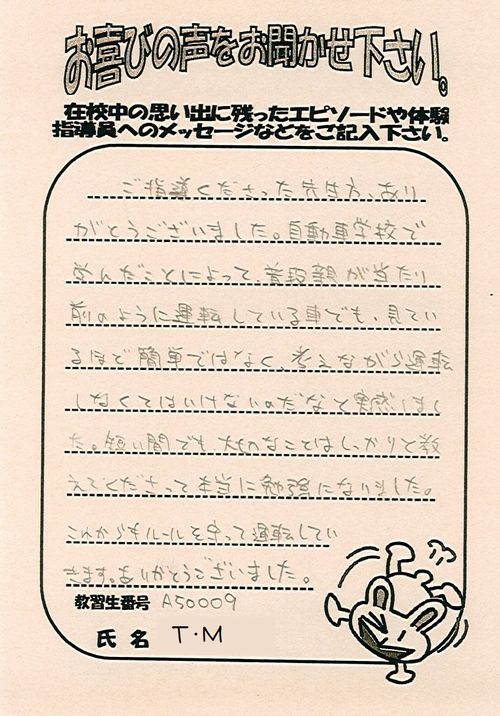 お喜びの声をお聞かせ下さい。
在校中の思い出に残ったエピソードや体験
指導員へのメッセージなどをご記入下さい。
ご指導くださった先生方、あり
がとうございました。自動車学校で
学んだことによって、普段親が当たり
前のように運転している車でも、見てい
るほど簡単ではなく、考えながら運転
しなくてはいけないのだなと実感しまし
た。短い間でも大切なことはしっかりと教
えてくださって本当に勉強になりました。
これからもルールを守って運転してい
きます。ありがとうございました。
教習生番号 A50009
氏名 T・M